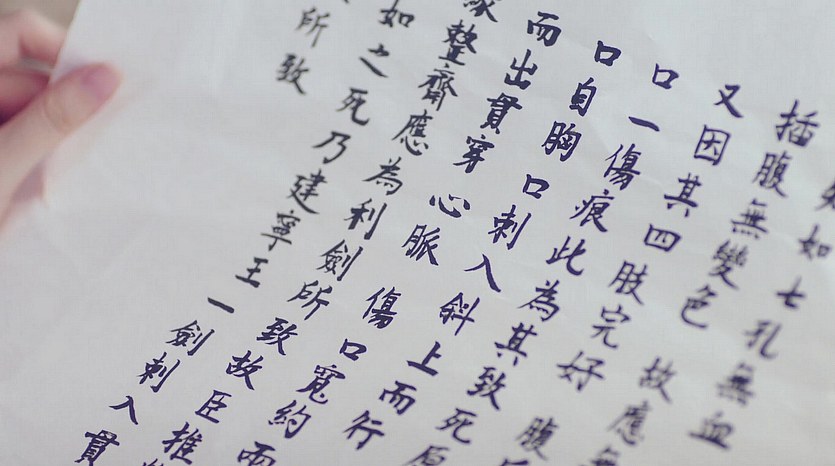 如七孔無血
插腹無變色故應無
又因其四肢完好腹
口一傷痕此為其致死原
口自胸口刺入斜上而行
而出貫穿心脈傷口寬約兩
緣整齊應為利劍所致故臣推
如之死乃建寧王一劍刺入貫
所致